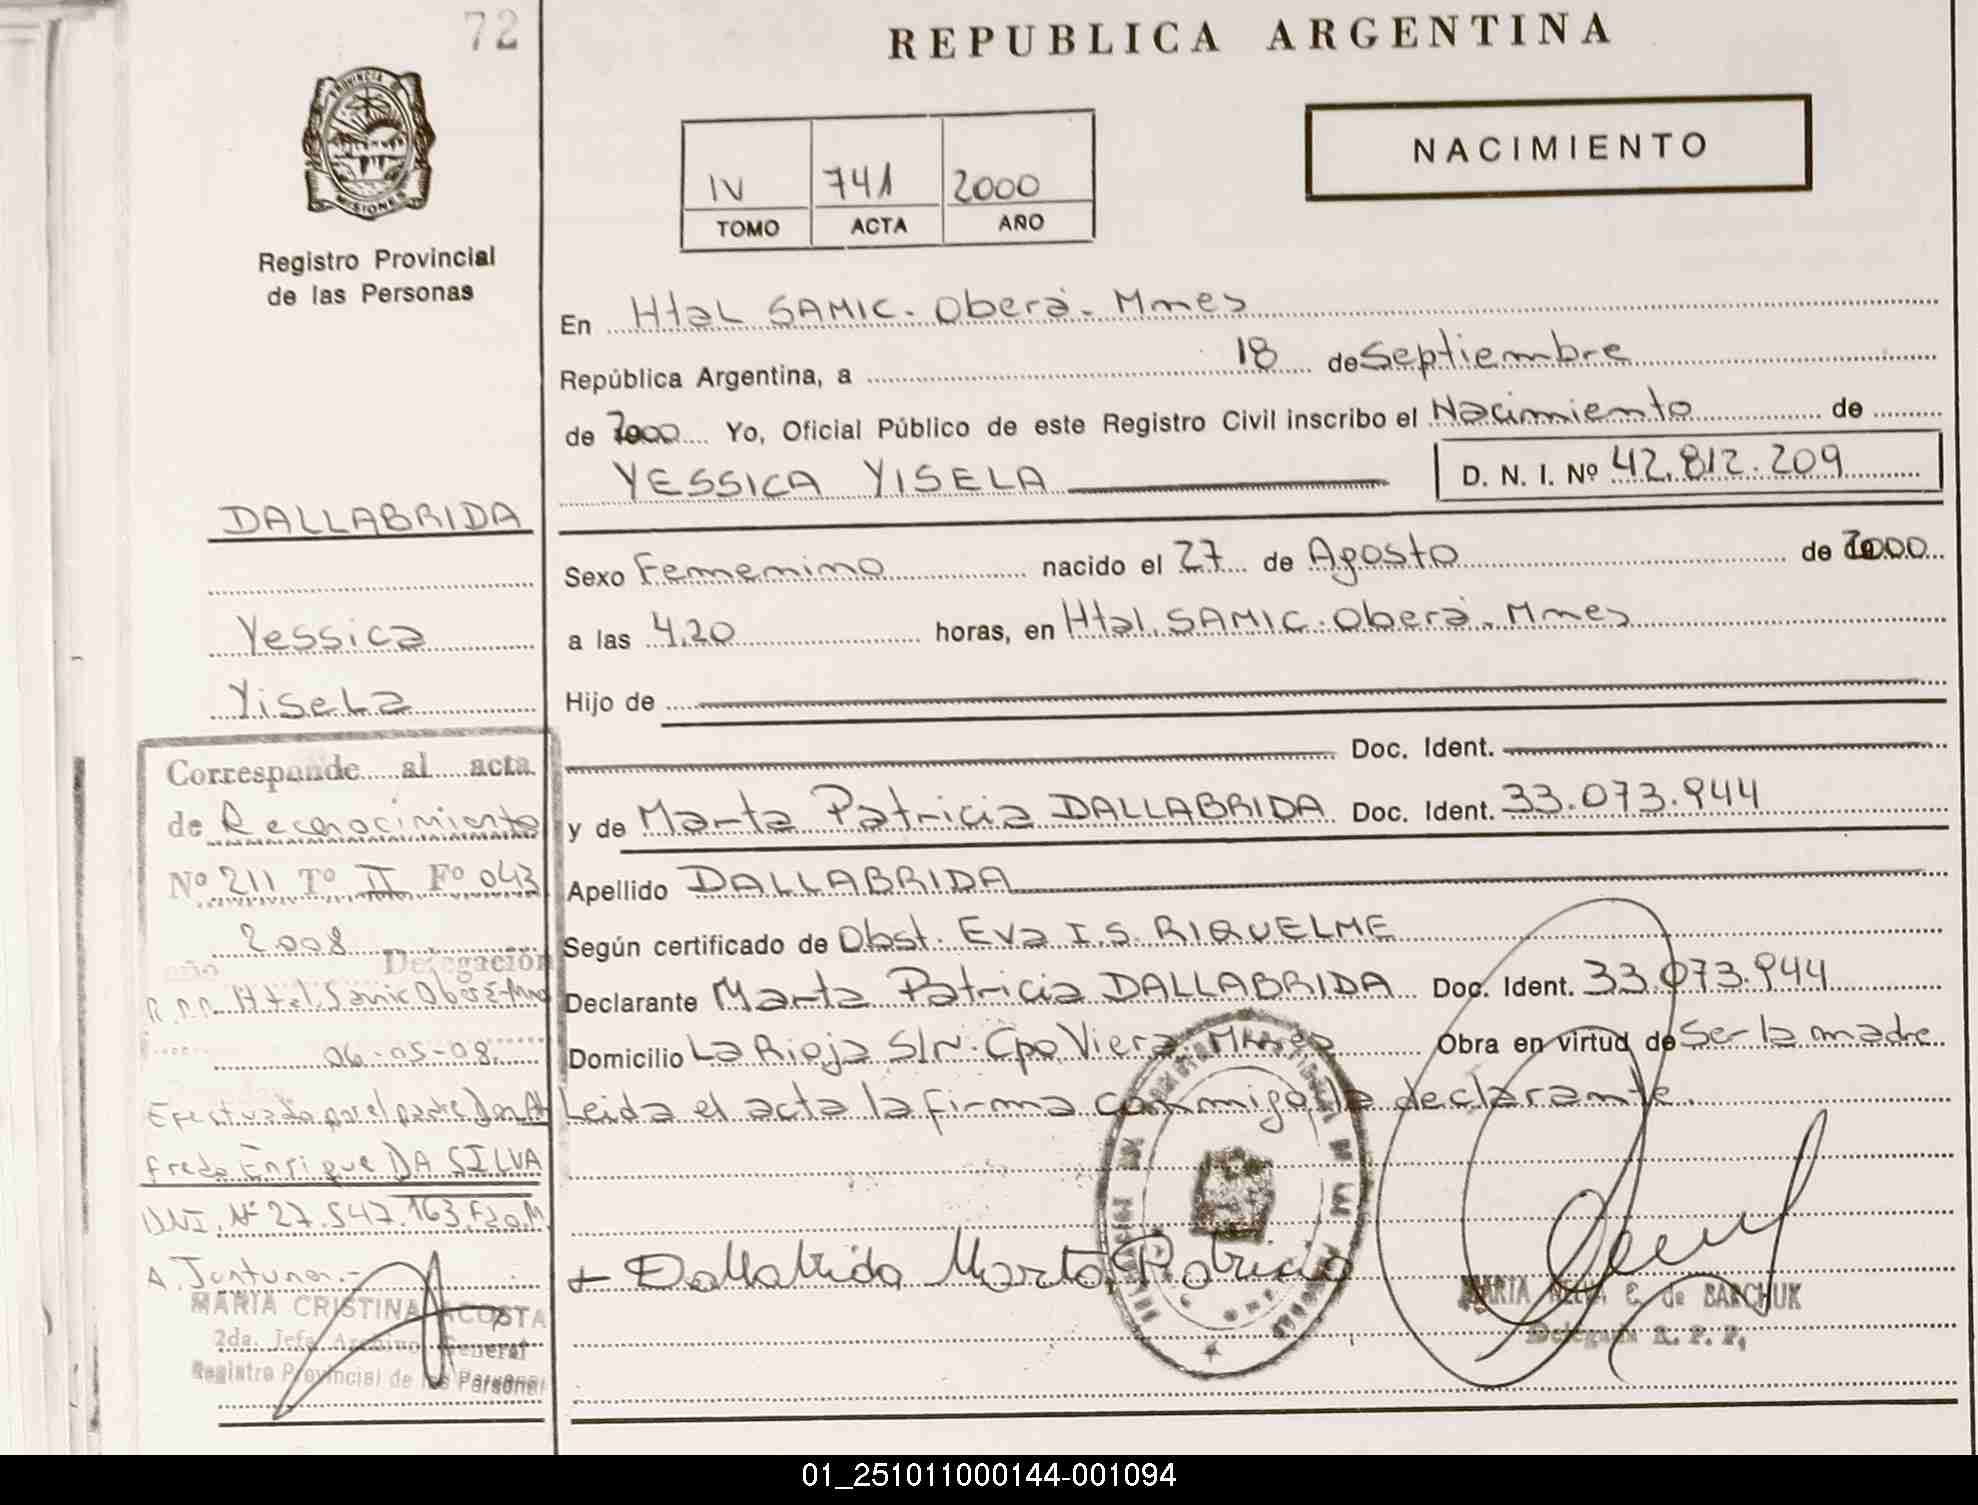 72
REPUBLICA ARGENTINA
PROVINCIA
MISIONES
Registro Provincial
de las Personas
IV 741 2000
TOMO ACTA AÑO
NACIMIENTO
En Htal SAMIC. Oberá. Mnes
República Argentina, a 18 de Septiembre
de 2000 Yo, Oficial Público de este Registro Civil inscribo el Nacimiento de
YESSICA YISELA D. N. I. Nº 42.812.209
Sexo Femenino nacido el 27 de Agosto de 2000
a las 4.20 horas, en Htal. SAMIC. Oberá. Mnes
Hijo de
Doc. Ident.
y de Marta Patricia DALLABRIDA Doc. Ident. 33.073.944
Apellido DALLABRIDA
Según certificado de Obst. Eva I.S. RIQUELME
Declarante Marta Patricia DALLABRIDA Doc. Ident. 33.073.944
Domicilio La Rioja S/N. Cpo Viera. Mnes Obra en virtud de Ser la madre
Leida el acta la firma conmigo, la declarante.
Dallabrida Marta Patricia
MARIA C. de BARCHUK
Delegada R. P. P.
DALLABRIDA
Yessica
Yisela
Corresponde al acta
de Reconocimiento
Nº 211 Tº II Fº 043
2008
año Delegación
R.P.P. Htal. Samic Oberá-Mnes
06-05-08.
Efectuado por el padre Don Al
fredo Enrique DA SILVA
DNI. Nº 27.547.163. Fdo. M.
A.
MARIA CRISTINA ACOSTA
2da. Jefa Archivo General
Registro Provincial de las Personas
01_251011000144-001094